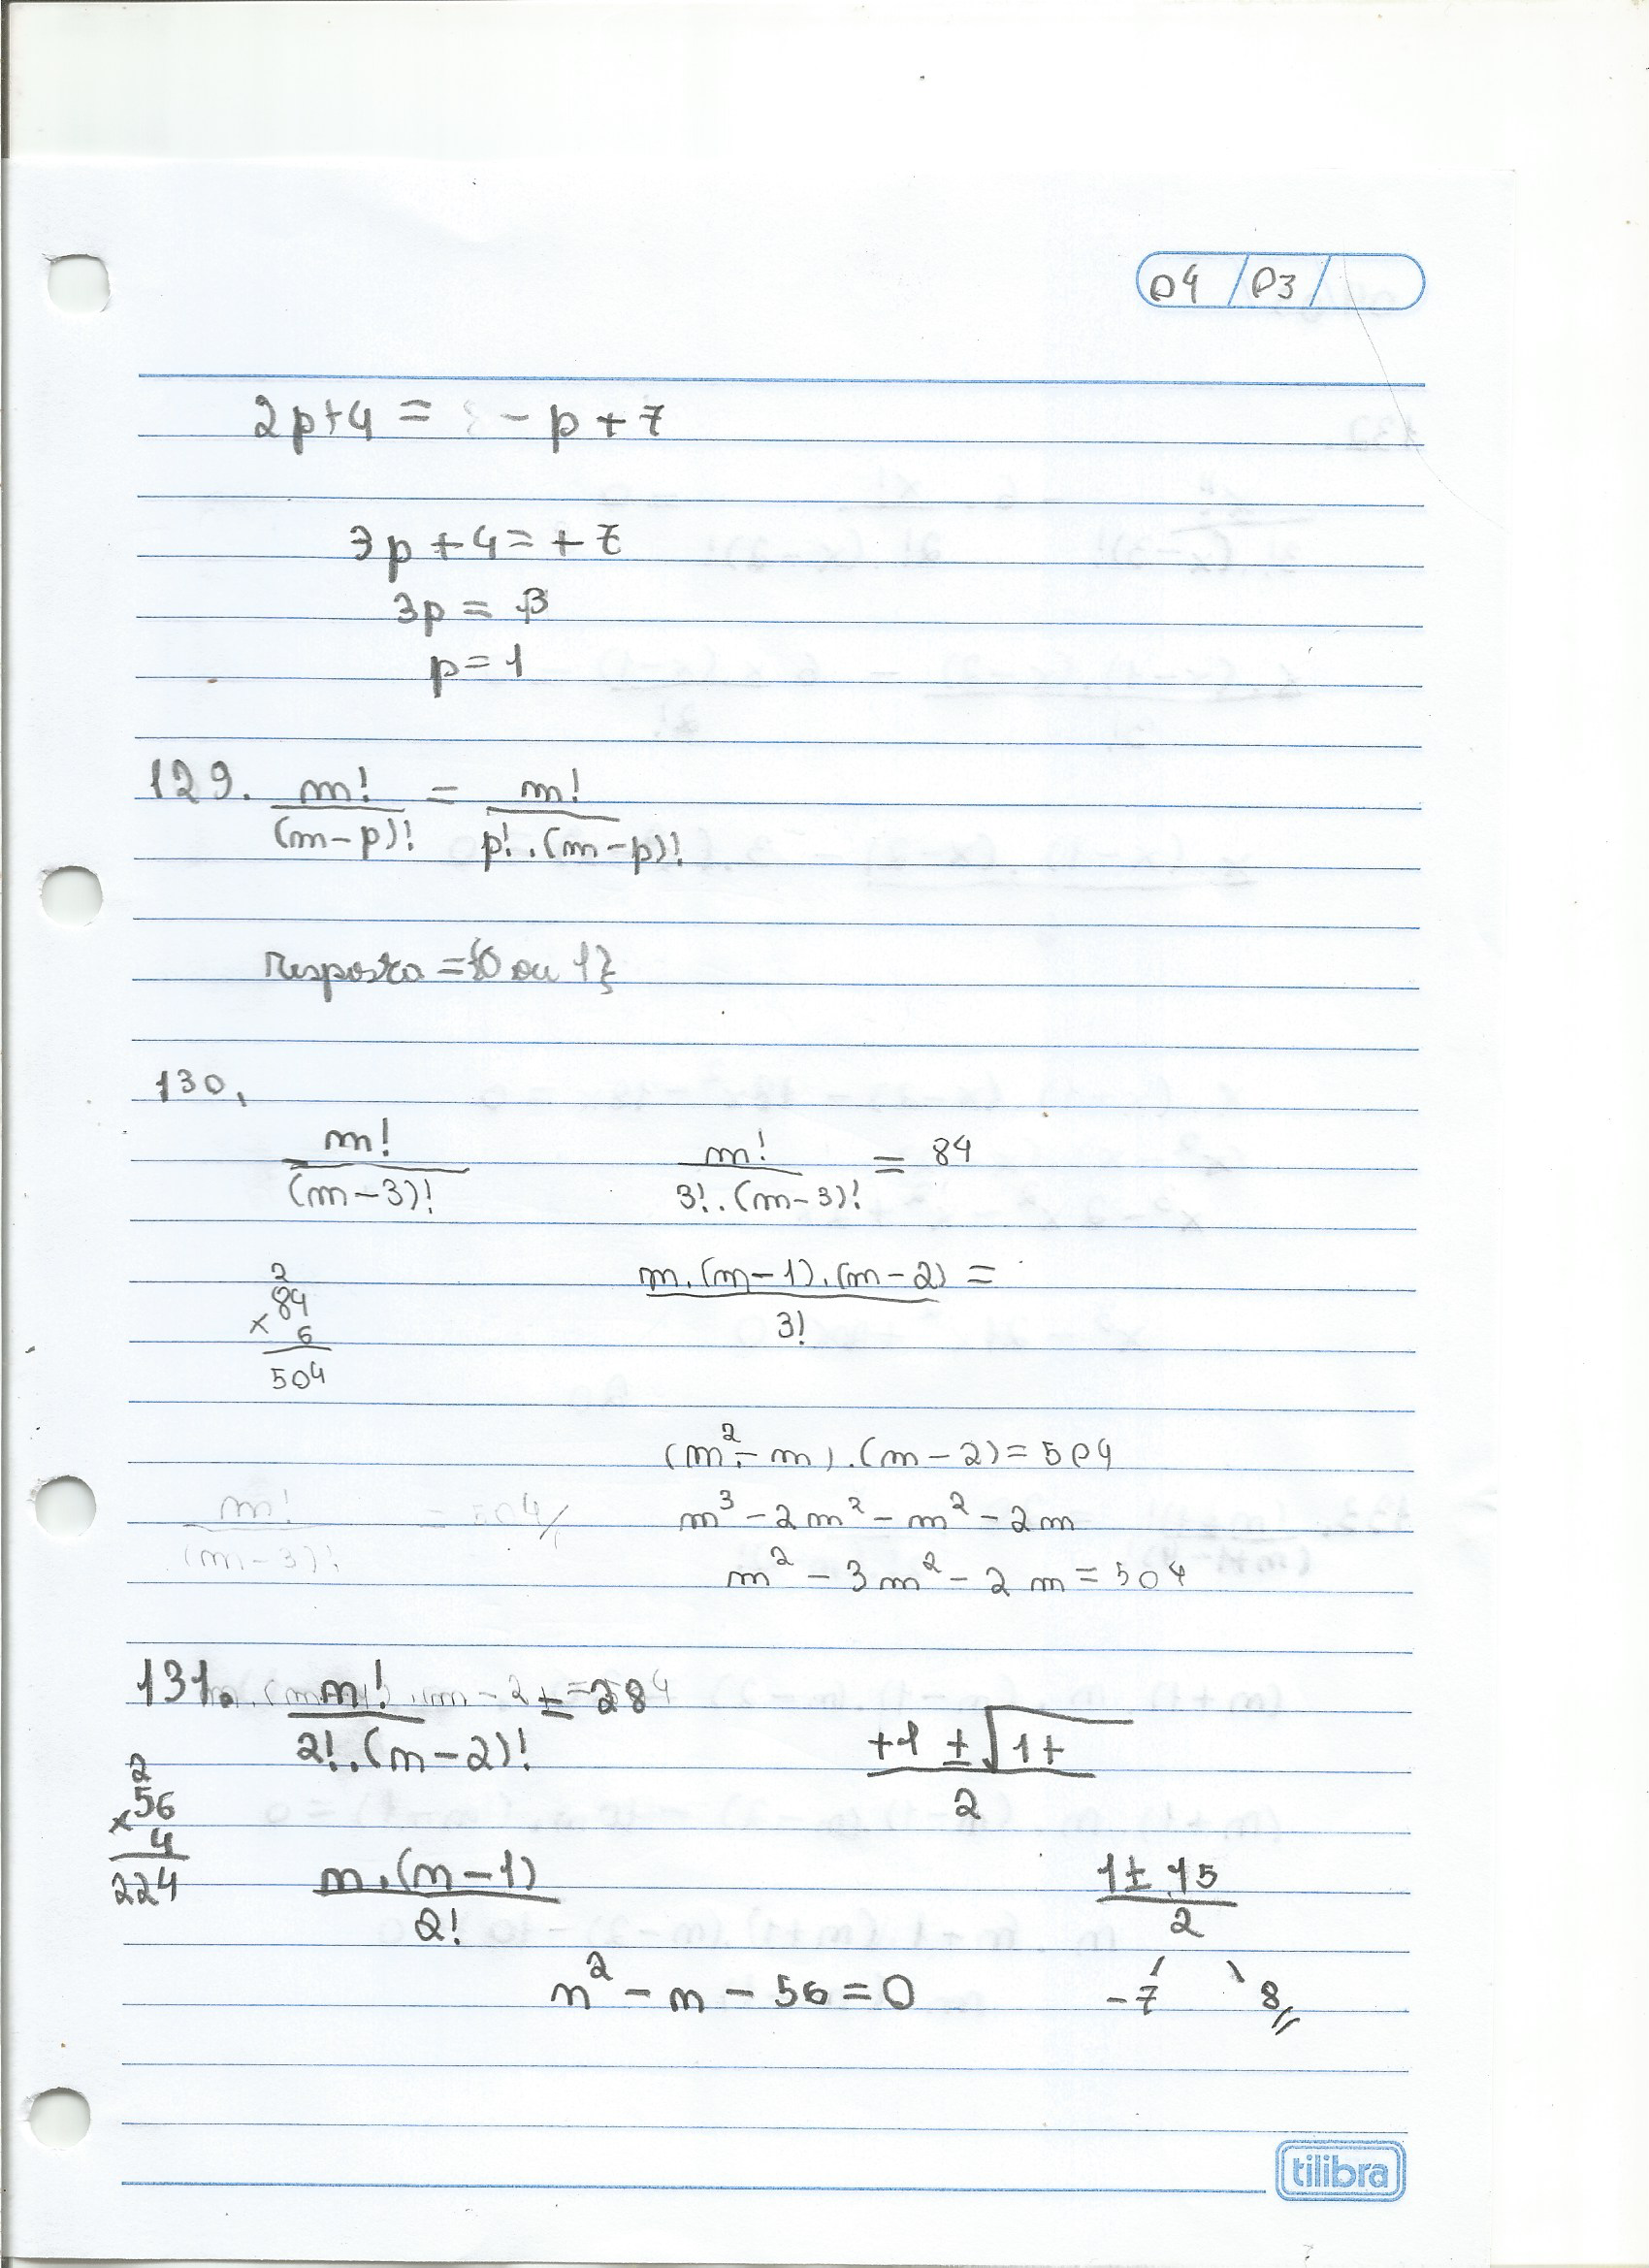 04 / 03 /
2p+4 = - p + 7
3p + 4 = + 7
3p = 3
p = 1
129. m!/(m-p)! = m!/p!.(m-p)!
resposta = {0 ou 1}
130.
m!/(m-3)! m!/3!.(m-3)! = 84
2
84
x 6
504
m.(m-1).(m-2)/3! =
(m²-m).(m-2) = 504
m!/(m-3)! = 504/
m³ - 2m² - m² - 2m
m² - 3m² - 2m = 504
131. m!/2!.(m-2)! = 28
+1 ± √1+ /2
2
56
x 4
224
m.(m-1)/2!
1 ± 15/2
n² - n - 56 = 0
-7 8
tilibra